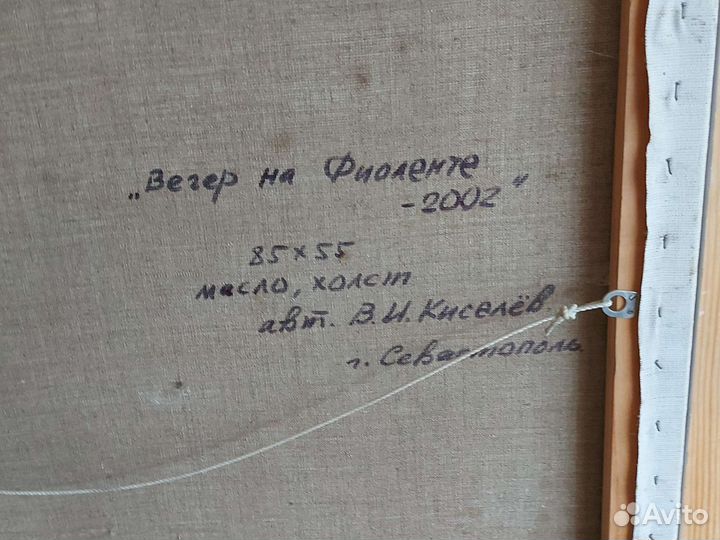 „Вечер на Фиоленте
-2002"
85×55
масло, холст
авт. В.И. Киселёв
г. Севастополь
Avito